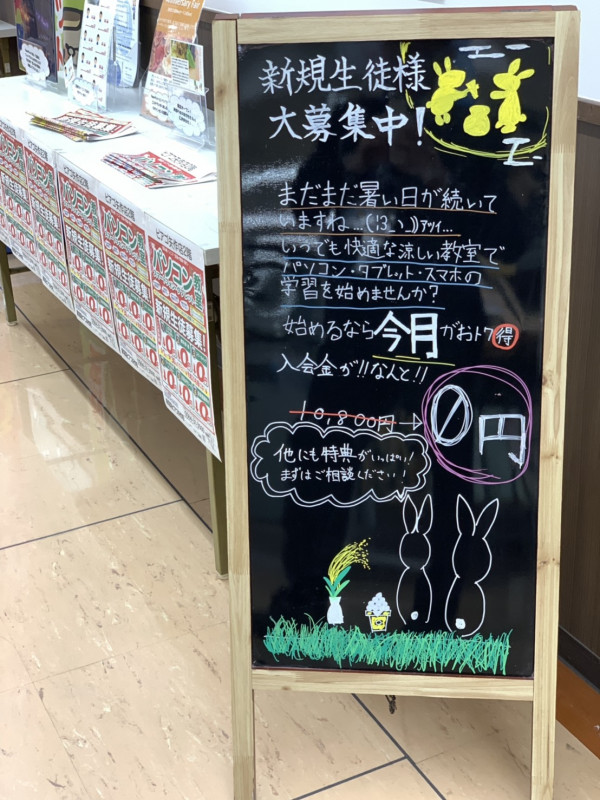 新規生徒様
大募集中!
まだまだ暑い日が続いて
いますね…(´3`))アツイ…
いつでも快適な涼しい教室で
パソコン・タブレット・スマホの
学習を始めませんか?
始めるなら今月がおトク得
入会金が!!なんと!!
10,800円→0円
他にも特典がいっぱい!
まずはご相談ください!
パソコン教室
新規生徒募集!